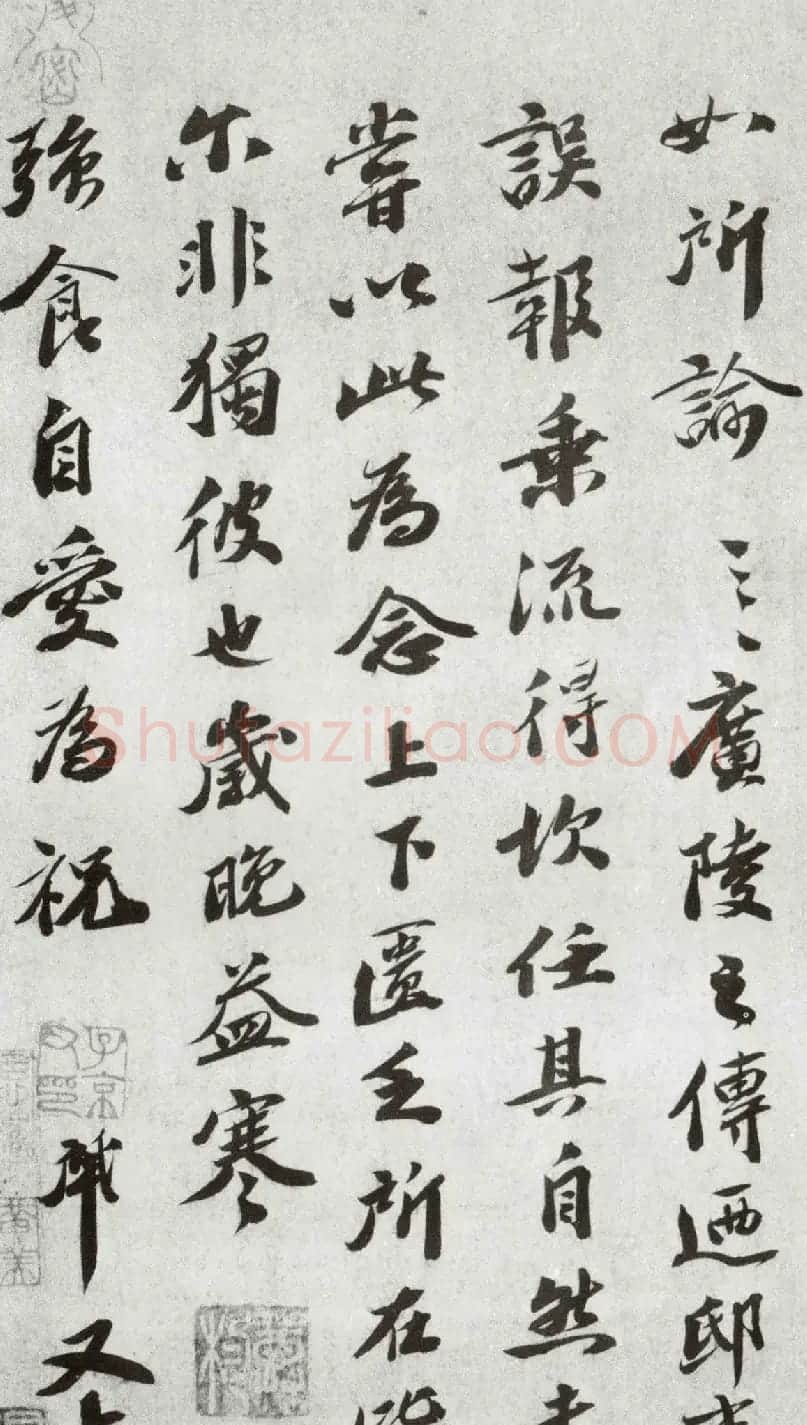 如所諭 三三廣陵之傳迺邸
誤報乗流得坎任其自然
嘗以此為念上下匱乏所在皆
尔非獨彼也歲晚益寒
強食自愛為祝 黻又
Shufaziliao.COM